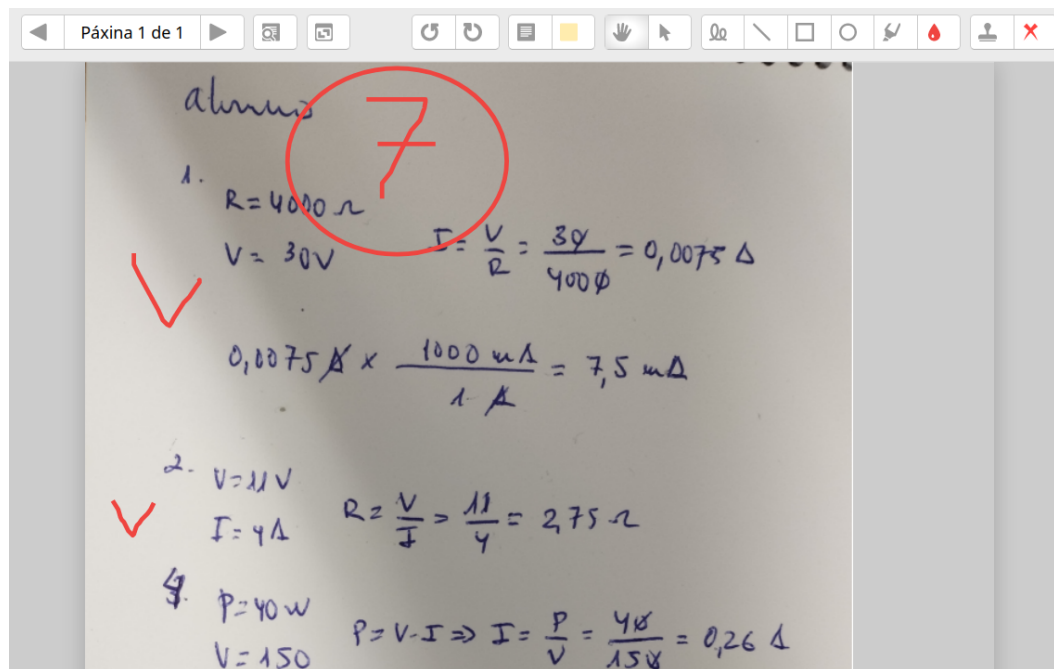 Páxina 1 de 1
alumno
7
1.
R = 4000 Ω
V = 30V
I = V/R = 30/4000 = 0,0075 A
0,0075 A × 1000 mA / 1 A = 7,5 mA
2.
V = 11 V
I = 4A
R = V/I = 11/4 = 2,75 Ω
4.
P = 40 W
V = 150
P = V·I ⇒ I = P/V = 40/150 = 0,26 A